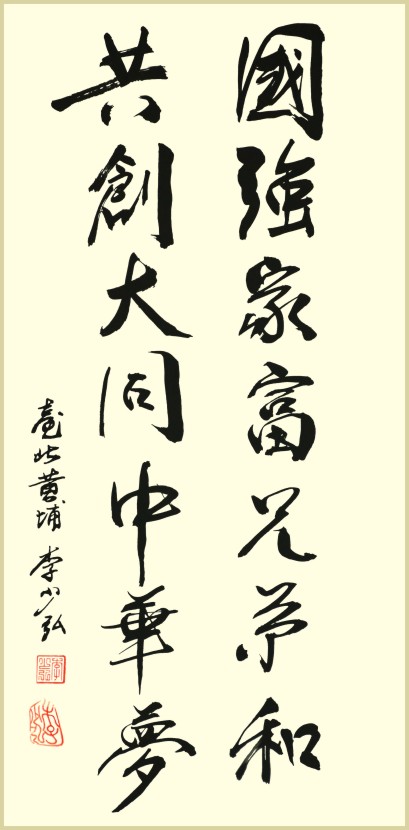 國強家富兄弟和
共創大同中華夢
臺北黄埔 李少弘